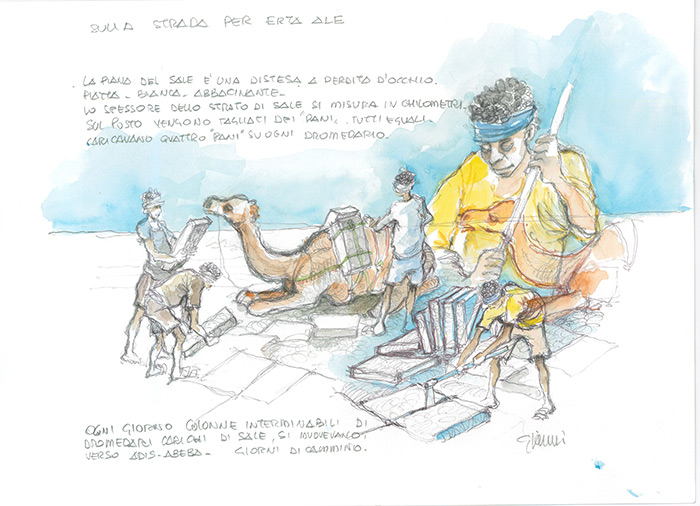 SULLA STRADA PER ERTA ALE
LA PIANA DEL SALE E' UNA DISTESA A PERDITA D'OCCHIO.
PIATTA - BIANCA - ABBACINANTE -
LO SPESSORE DELLO STRATO DI SALE SI MISURA IN CHILOMETRI.
SUL POSTO VENGONO TAGLIATI DEI "PANI". TUTTI EGUALI.
CARICAVANO QUATTRO "PANI" SU OGNI DROMEDARIO.
OGNI GIORNO COLONNE INTERMINABILI DI
DROMEDARI CARICHI DI SALE, SI MUOVEVANO,
VERSO ADIS-ABEBA - GIORNI DI CAMMINO.
Gianni